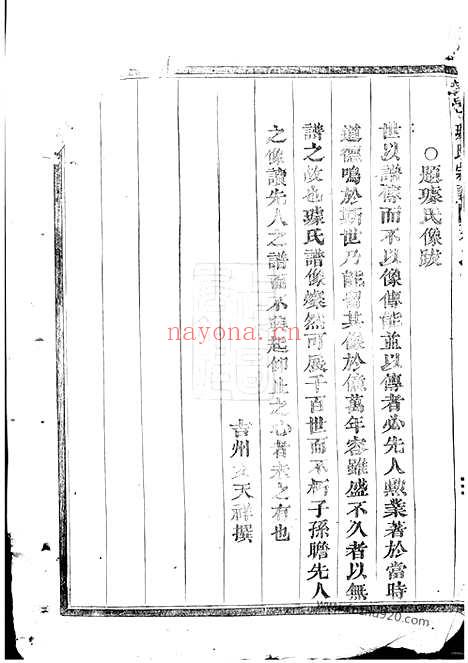 璩氏宗譜
題璩氏像跋
世以譜傳而不以像傳能並以傳者必先人勲業著於當時
道德鳴於斯世乃能留其像於億萬年容雖盛不久者以無
譜之故也璩氏譜像燦然可展千百世而不朽子孫瞻先人
之像讀先人之譜而不興起仰止之心者未之有也
吉州文天祥撰
nayona.cn